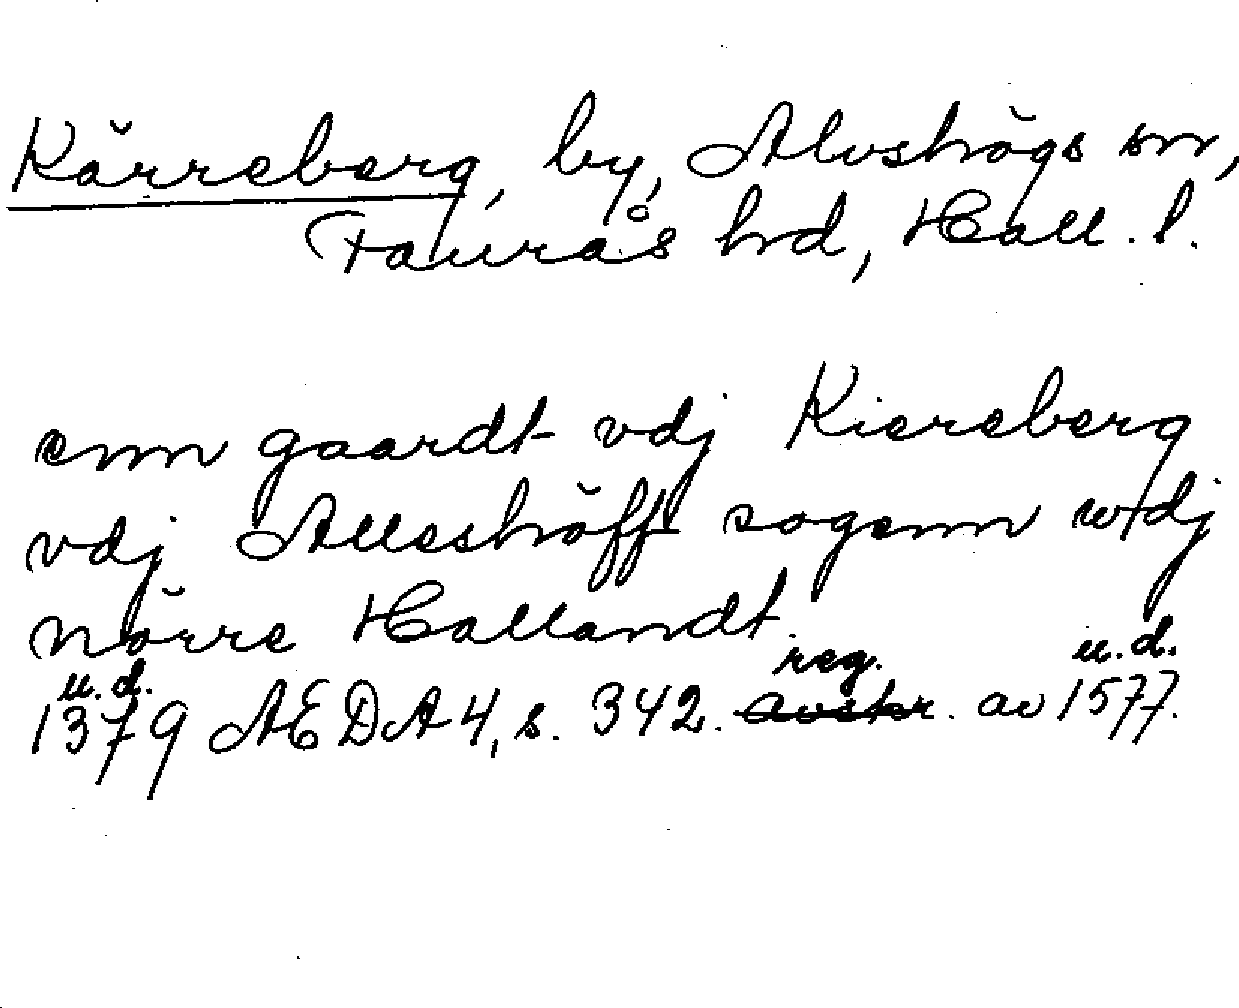 Kärreberg, by, Alvshögs sn,
Faurås hd, Hall. l.
enn gaardt vdj Kiereberg
vdj Alleshöff sogenn wdj
Nörre Hallandt.
u.d. reg. u.d.
1379 AEDA 4, s. 342. avskr. av 1577.